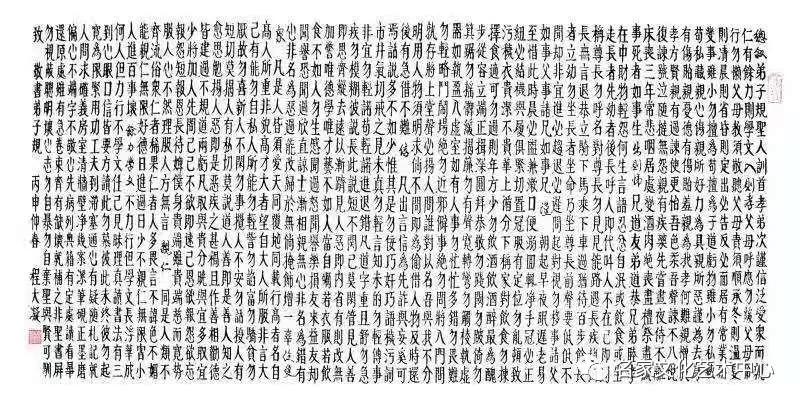 總叙 弟子規聖人訓首孝弟次謹信泛愛眾而親
仁有餘力則學文 入則孝 父母呼應勿緩父母命
行勿懶父母教須敬聽父母責須順承冬則溫夏
則凊晨則省昏則定出必告反必面居有常業無
變事雖小勿擅為苟擅為子道虧物雖小勿私藏
苟私藏親心傷親所好力為具親所惡謹為去身
有傷貽親憂德有傷貽親羞親愛我孝何難親憎我
孝方賢親有過諫使更怡吾色柔吾聲諫不入悅
復諫號泣隨撻無怨親有疾藥先嘗晝夜侍不離
床喪三年常悲咽居處變酒肉絕喪盡禮祭盡誠
事死者如事生 出則弟 兄道友弟道恭兄弟睦孝
在中財物輕怨何生言語忍忿自泯或飲食或坐
走長者先幼者後長呼人即代叫人不在己即到
稱尊長勿呼名對尊長勿見能路遇長疾趨揖
長無言退恭立騎下馬乘下車過猶待百步餘長
者立幼勿坐長者坐命乃坐尊長前聲要低低不
聞却非宜進必趨退必遲問起對視勿移事諸父
如事父事諸兄如事兄 謹 朝起早夜眠遲老易
至惜此時晨必盥兼漱口便溺回輒淨手冠必正
紐必結襪與履俱緊切置冠服有定位勿亂頓致
污穢衣貴潔不貴華上循分下稱家對飲食勿揀
擇食適可勿過則年方少勿飲酒飲酒醉最為醜
步從容立端正揖深圓拜恭敬勿踐閾勿跛倚勿
箕踞勿搖髀緩揭簾勿有聲寬轉彎勿觸棱執虛
器如執盈入虛室如有人事勿忙忙多錯勿畏難
勿輕略鬥鬧場絕勿近邪僻事絕勿問將入門問
孰存將上堂聲必揚人問誰對以名吾與我不分
明用人物須明求倘不問即為偷借人物及時還
後有急借不難 信 凡出言信為先詐與妄奚可
焉話說多不如少惟其是勿佞巧奸巧語穢污詞
市井氣切戒之見未真勿輕言知未的勿輕傳事
非宜勿輕諾苟輕諾進退錯凡道字重且舒勿急
疾勿模糊彼說長此說短不關己莫閑管見人善
即思齊縱去遠以漸躋見人惡即內省有則改無
加警唯德學唯才藝不如人當自礪若衣服若飲
食不如人勿生慼聞過怒聞譽樂損友來益友却
聞譽恐聞過欣直諒士漸相親無心非名為錯有
心非名為惡過能改歸於無倘掩飾增一辜 泛愛
眾 凡是人皆須愛天同覆地同載行高者名自
高人所重非貌高才大者望自大人所服非言大
己有能勿自私人所能勿輕訾勿諂富勿驕貧勿
厭故勿喜新人不閑勿事攪人不安勿話擾人有
短切莫揭人有私切莫說道人善即是善人知之
愈思勉揚人惡即是惡疾之甚禍且作善相勸德
皆建過不規道兩虧凡取與貴分曉與宜多取宜
少將加人先問己己不欲即速已恩欲報怨欲忘
報怨短報恩長待婢僕身貴端雖貴端慈而寬勢
服人心不然理服人方無言 親仁 同是人類不
齊流俗眾仁者稀果仁者人多畏言不諱色不媚
能親仁無限好德日進過日少不親仁無限害小
人進百事壞 餘力學文 不力行但學文長浮華成
何人但力行不學文任己見昧理真讀書法有三
到心眼口信皆要方讀此勿慕彼此未終彼勿起
寬為限緊用功工夫到滯塞通心有疑隨札記就
人問求確義房室清牆壁淨几案潔筆硯正墨磨
偏心不端字不敬心先病列典籍有定處讀看畢
還原處雖有急卷束齊有缺壞就補之非聖書屏
勿視蔽聰明壞心志勿自暴勿自棄聖與賢可馴
致 敬書弟子規 丙申仲春 程大凝
名家文化艺术中心